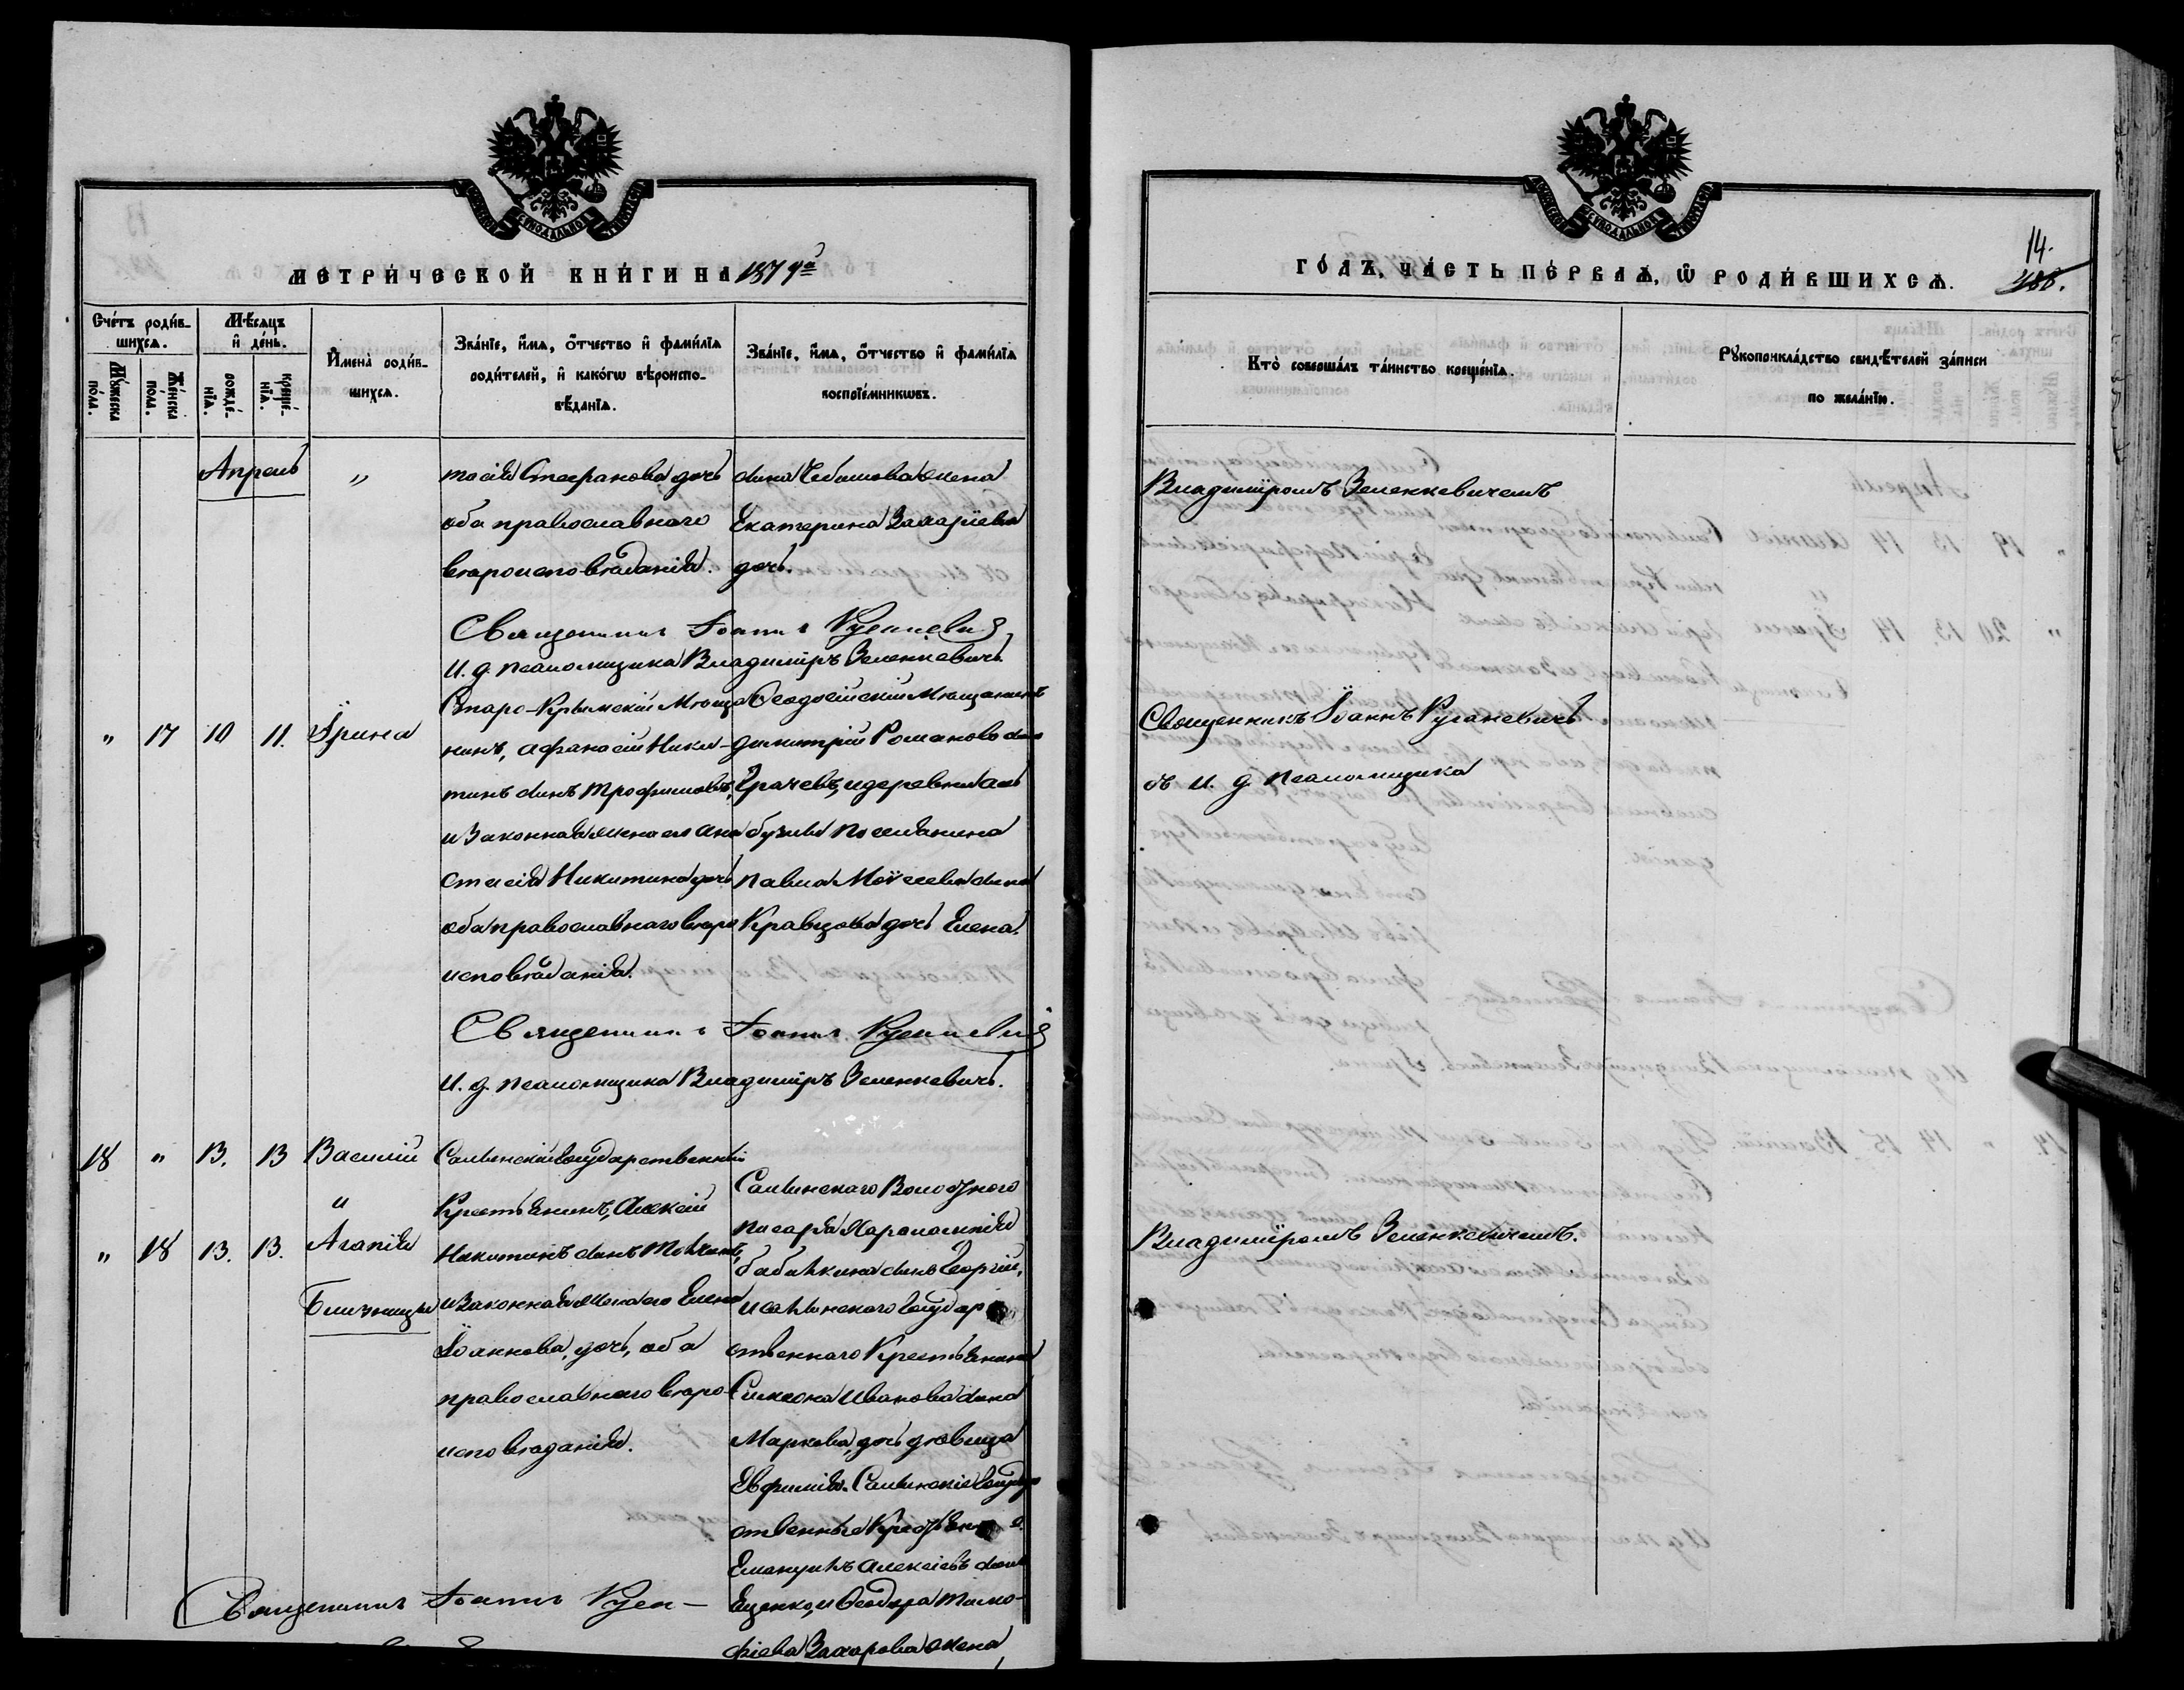 СѴНОДАЛЬНОЙ
МЕТРИ́ЧЕСКОЙ КНИ́ГИ НА 1879й
Сче́тъ роди́в-
шихсѧ.
Мꙋ́жеска
по́ла.
Же́нска
по́ла.
Мѣ́сѧцъ
и҆ де́нь.
рожде́-
нїѧ.
креще́-
нїѧ.
И҆мена̀ роди́в-
шихсѧ.
Зва́нїе, и҆́мѧ, ѻ҆́тчество и҆ фами́лїѧ
роди́телей, и҆ како́гѡ вѣроиспо-
вѣ́данїѧ.
Зва́нїе, и҆́мѧ, ѻ҆́тчество и҆ фами́лїѧ
воспрїе́мникѡвъ.
Апрель
"
тасія Стефанова дочь
оба православнаго
вѣроисповѣданія.
сына жена
Екатерина Захаріева
дочь.
Священникъ Іоаннъ
И. д. псаломщика Владиміръ Зеленкевичъ.
" 17 10 11. Ірина
Старо-Крымскій Мѣща-
нинъ, Афанасій Ники-
тинъ сынъ Трофимовъ,
и Законная жена его Ана
стасія Никитина дочь
оба православнаго вѣро
исповѣданія.
Ѳеодосійскій Мѣщанинъ
Димитрій Романовъ сынъ
Грачевъ, и деревни
поселянина
Павла Моѵсеева сына
Кравцова дочь Елена.
Священникъ Іоаннъ
И. д. псаломщика Владиміръ Зеленкевичъ.
18 " 13. 13 Василій
и
" 18 13. 13. Агапія
Близнецы
Салынскій Государственный
Крестьянинъ, Алексій
Никитинъ сынъ
и Законная жена его Елена
Іоаннова, дочь, оба
православнаго вѣро-
исповѣданія.
Салынскаго Волостного
писаря Харалампія
сынъ Георгій,
и Салынскаго Государ
ственнаго Крестьянина
Симеона Иванова сына
Маркова, дочь дѣвица
Евфимія. Салынскіе Государ
ственные Крестьяне
Емануилъ Алексіевъ сынъ
Ященко, и Ѳеодора Тимо-
фіева Захарова жена,
Священникъ Іоаннъ
СѴНОДАЛЬНОЙ
ГО́ДЪ, ЧА́СТЬ ПЕ́РВАѦ, Ѡ҆ РОДИ́ВШИХСѦ.
14.
Кто̀ соверша́лъ та́инство креще́нїѧ.
Рꙋкоприкла́дство свидѣ́телей за́писи
по жела́нїю.
Владиміромъ Зеленкевичемъ
Священникъ Іоаннъ
съ и. д. псаломщика
Владиміромъ Зеленкевичемъ.